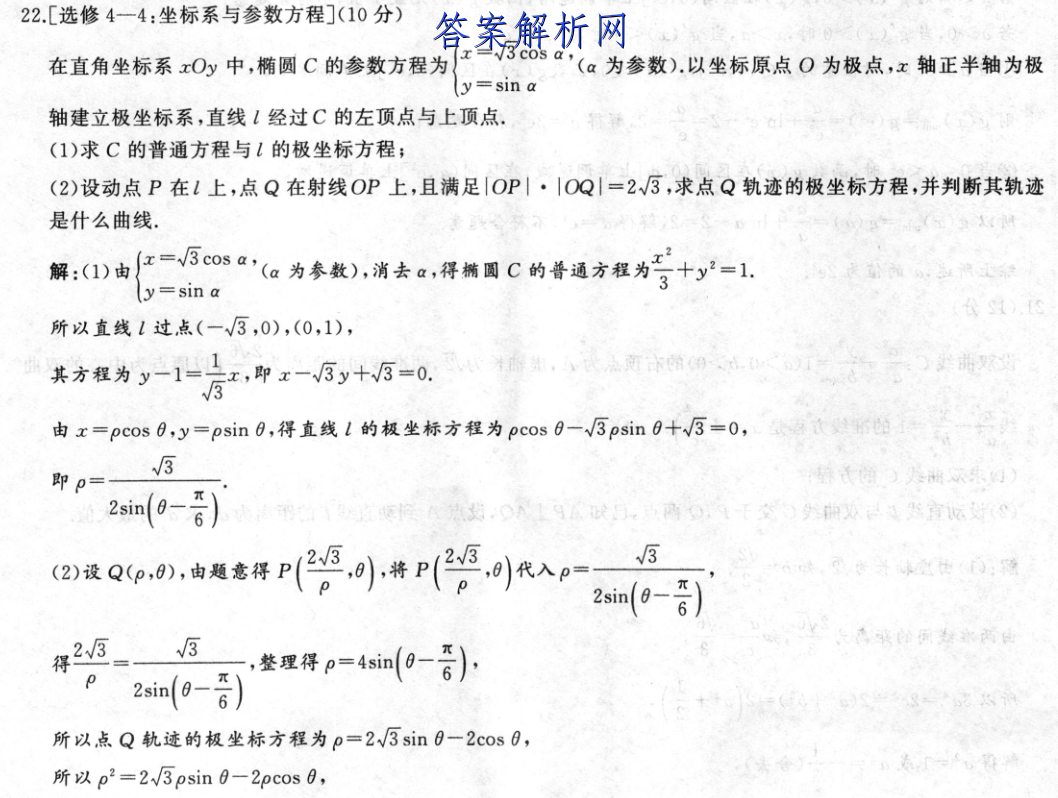 22.[选修 4—4:坐标系与参数方程](10 分)
答案解析网
在直角坐标系 xOy 中,椭圆 C 的参数方程为{x=√3cos α, y=sin α (α 为参数).以坐标原点 O 为极点,x 轴正半轴为极
轴建立极坐标系,直线 l 经过 C 的左顶点与上顶点.
(1)求 C 的普通方程与 l 的极坐标方程;
(2)设动点 P 在 l 上,点 Q 在射线 OP 上,且满足|OP|·|OQ|=2√3,求点 Q 轨迹的极坐标方程,并判断其轨迹
是什么曲线.
解:(1)由{x=√3cos α, y=sin α (α 为参数),消去 α,得椭圆 C 的普通方程为x²/3+y²=1.
所以直线 l 过点(-√3,0),(0,1),
其方程为 y-1=1/√3 x,即 x-√3y+√3=0.
由 x=ρcos θ,y=ρsin θ,得直线 l 的极坐标方程为 ρcos θ-√3ρsin θ+√3=0,
即 ρ=√3/(2sin(θ-π/6)).
(2)设 Q(ρ,θ),由题意得 P(2√3/ρ,θ),将 P(2√3/ρ,θ)代入 ρ=√3/(2sin(θ-π/6)),
得2√3/ρ=√3/(2sin(θ-π/6)),整理得 ρ=4sin(θ-π/6),
所以点 Q 轨迹的极坐标方程为 ρ=2√3sin θ-2cos θ,
所以 ρ²=2√3ρsin θ-2ρcos θ,